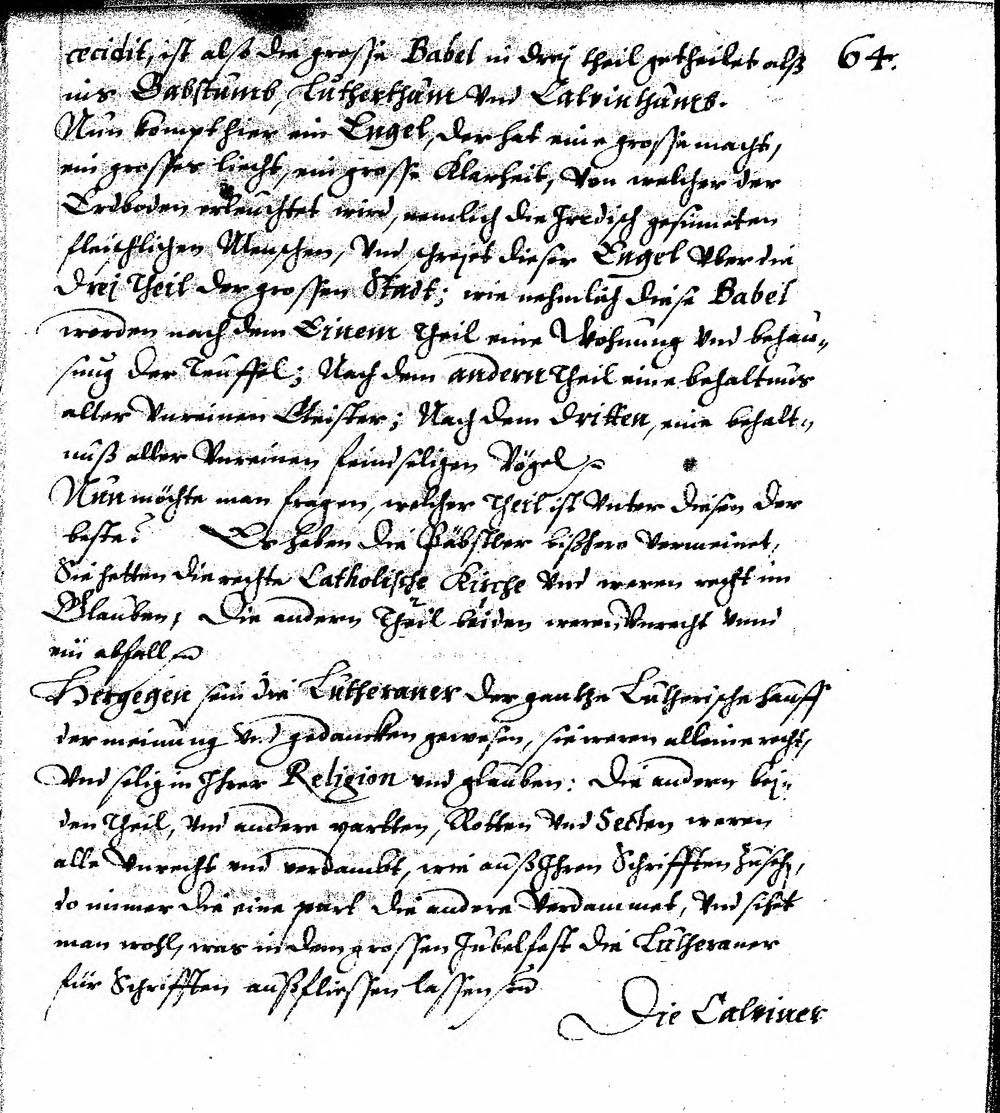 cecidit, ist alß die grosse Babel in drej theil getheilet alß 64.
ins Babstumb, Lutherthum vnd Calvinthumb.
Nun kompt hier ein Engel, der hat eine grosse macht,
ein grosses liecht, ein grosse Klarheit, von welcher der
Erdboden erleuchtet wird, nemlich die Jrrdisch gesinneten
fleischlichen Menschen, vnd schrejet dieser Engel vber die
drej Theil der grossen Stadt; wie nehmlich diese Babel
worden nach dem Einem Theil eine Wohnung vnd behau-
sung der Teuffel; Nach dem andern Theil eine behaltnus
aller vnreinen Geister; Nach dem dritten, eine behalt-
nuß aller vnreinen feindseligen Vögel
Nun möchte man fragen, welcher Theil ist vnter diesen der
beste? Es haben die Päbstler bißhero vermeinet,
Sie hetten die rechte Catholische Kirche vnd weren recht im
Glauben, Die andern Theil beiden weren vnrecht vnnd
ein abfall
Hergegen sein die Lutheraner der gantze Lutherische hauff
der meinung vnd gedancken gewesen, sie weren alleine recht,
vnd selig in Jhrer Religion vnd glauben: Die andern bej-
den Theil, vnd andere partten, Rotten vnd Secten weren
alle vnrecht vnd verdambt, wie auß Jhren Schrifften zusehn,
do immer die eine part die andere verdammet, vnd sihet
man wohl, was in dem grossen Jubelfest die Lutheraner
für Schrifften außfliessen lassen
Die Calviner